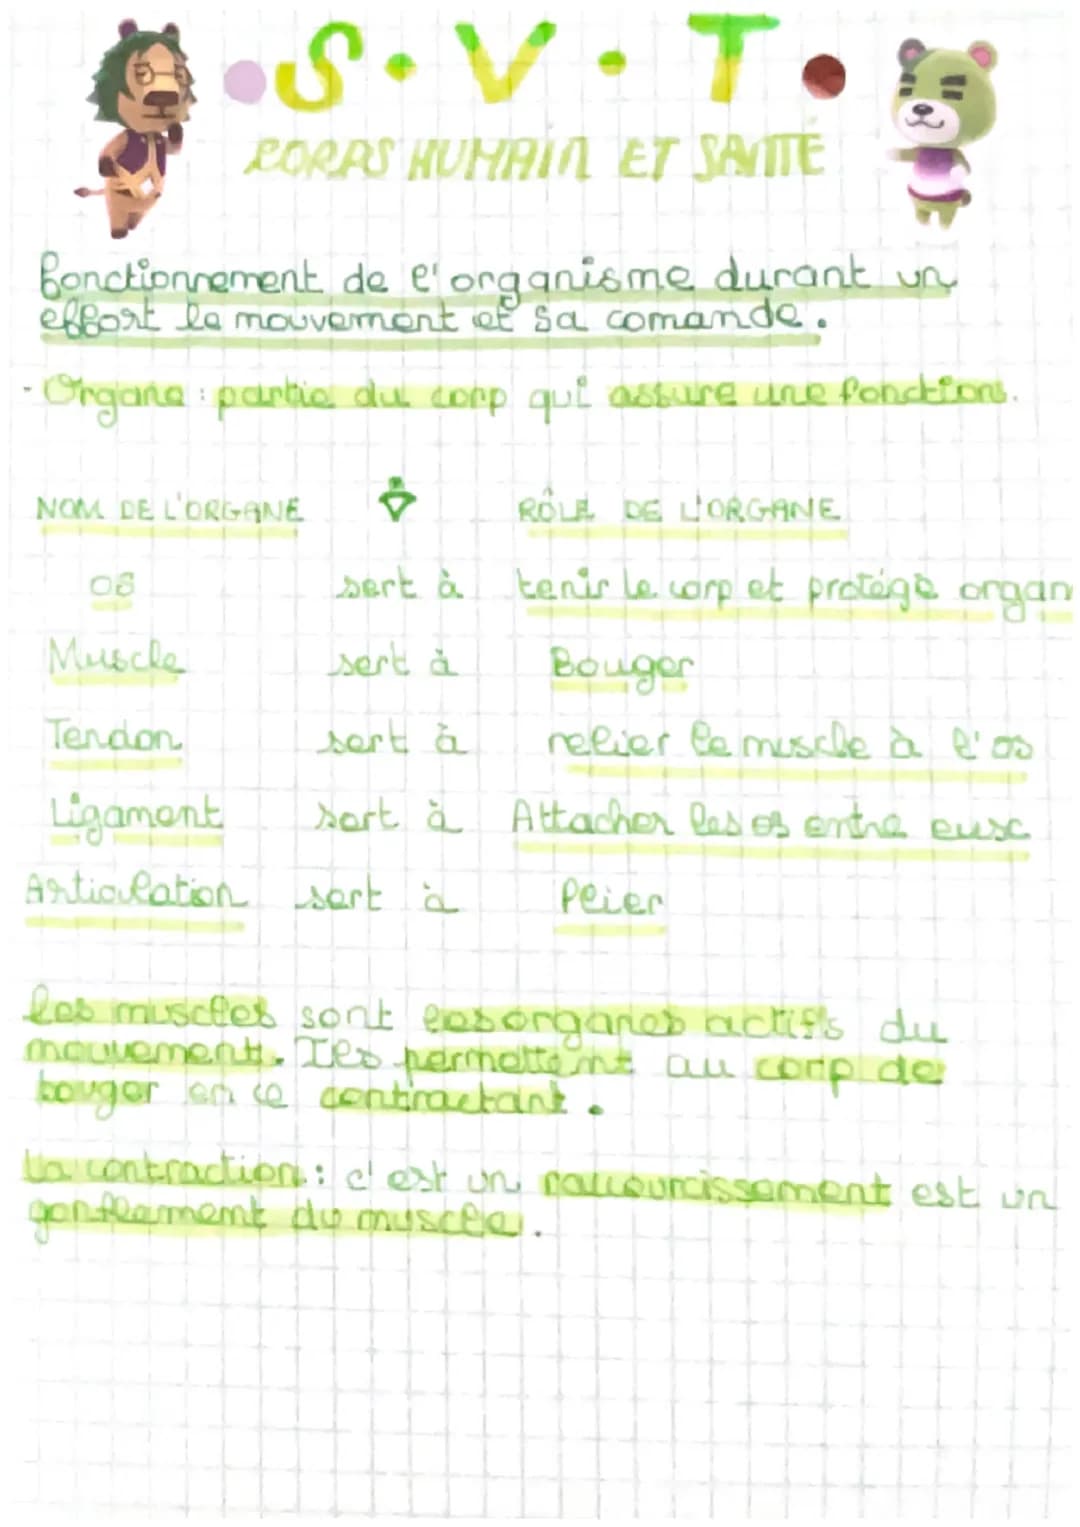 S.V.T.
CORPS HUMAIN ET SANTÉ
fonctionnement de l'organisme durant un
effort le mouvement et sa comande.
- Organe : partie du corp qui assure une fonction.
NOM DE L'ORGANE RÔLE DE L'ORGANE
OS sert à tenir le corp et protégé organ
Muscle sert à Bouger
Tendon sert à relier le muscle à l'os
Ligament sert à Attacher les os entre eusc
Articulation sert à Plier
les muscles sont les organes actifs du
mouvement. Ils permettent au corp de
bouger en ce contractant.
la contraction : c'est un raccourcissement est un
gonflement du muscle.